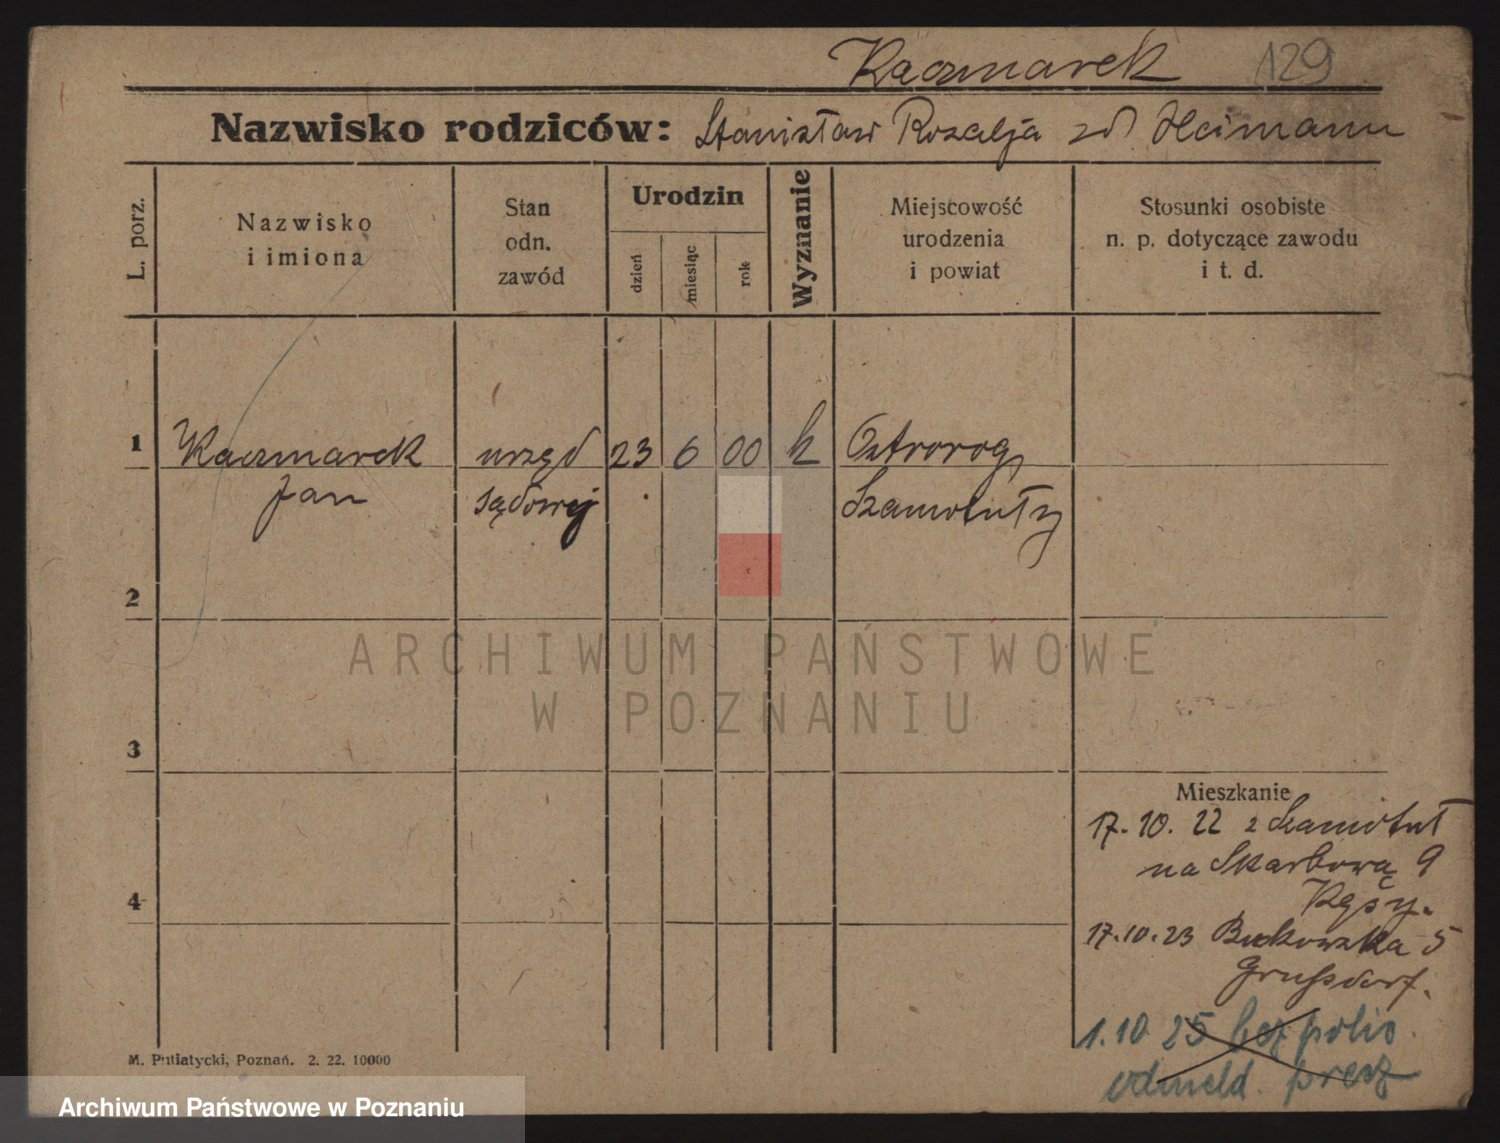 Kaczmarek 129
Nazwisko rodziców: Stanisław Rozalja zd Heimann
L. porz.
Nazwisko
i imiona
Stan
odn.
zawód
Urodzin
dzień
miesiąc
rok
Wyznanie
Miejscowość
urodzenia
i powiat
Stosunki osobiste
n. p. dotyczące zawodu
i t. d.
1 Kaczmarek urzęd 23 6 00 k Ostroróg
Jan sądowy Szamotuły
2
ARCHIWUM PAŃSTWOWE
W POZNANIU
3
Mieszkanie
17.10.22 z Szamotuł
na Skarbową 9
4
17.10.23 Bukowska 5
1.10 25 bez polic.
odmeld.
M. Putiatycki, Poznań. 2. 22. 10000
Archiwum Państwowe w Poznaniu